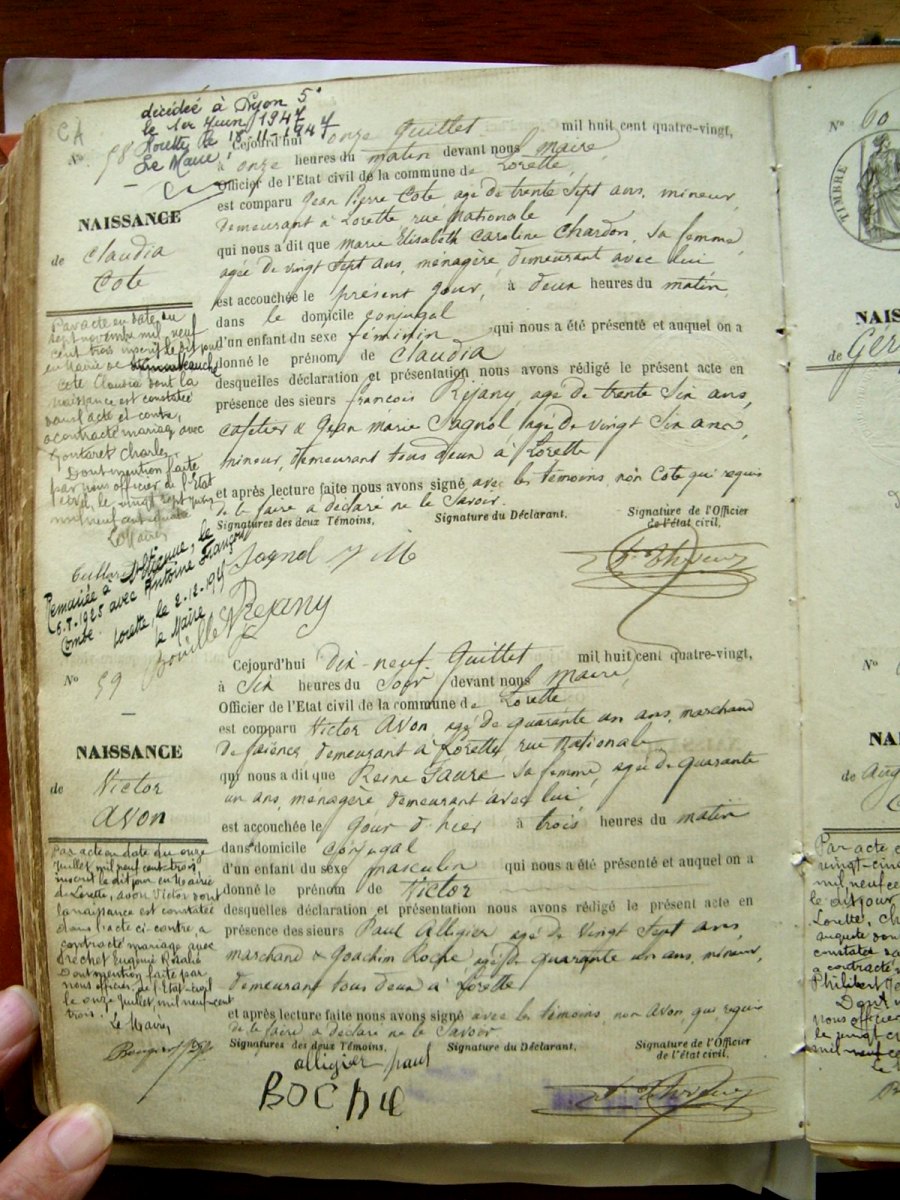 CA
décédée à Lyon 5e
le 1er Juin 1947
Lorette le 18-11-1947
Le Maire
N° 58
NAISSANCE
de Claudia
Cote
Cejourd'hui onze Juillet mil huit cent quatre-vingt,
à onze heures du matin devant nous Maire,
Officier de l'Etat civil de la commune de Lorette,
est comparu Jean Pierre Cote, agé de trente Sept ans, mineur
demeurant à Lorette rue Nationale
qui nous a dit que Marie Elisabeth Caroline Chardon, Sa femme,
agée de vingt Sept ans, ménagère, demeurant avec lui
est accouchée le présent jour, à deux heures du matin,
dans le domicile conjugal
d'un enfant du sexe féminin qui nous a été présenté et auquel on a
donné le prénom de Claudia
desquelles déclaration et présentation nous avons rédigé le présent acte en
présence des sieurs françois Rejany, agé de trente Six ans,
cafetier & Jean Marie Sagnol agé de vingt Six ans,
mineur, demeurant tous deux à Lorette
et après lecture faite nous avons signé avec les témoins non Cote qui requis
de le faire a déclaré ne le Savoir
Signatures des deux Témoins, Signature du Déclarant. Signature de l'Officier
de l'état civil,
Sagnol J M
Rejany
Par acte en date du
sept novembre mil neuf
cent trois inscrit le dit jour
en Mairie de
Cote Claudia dont la
naissance est constatée
dans l'acte ci-contre,
a contracté mariage avec
Gontaret Charles
Dont mention faite
par nous officier de l'Etat
civil, le vingt sept
mil neuf cent quatre
Le Maire
Remariée à St Etienne, le
avec Antoine François
Combe. Lorette, le 2-12-
le Maire
N° 59
NAISSANCE
de Victor
Avon
Cejourd'hui Dix-neuf Juillet mil huit cent quatre-vingt,
à Six heures du Soir devant nous Maire,
Officier de l'Etat civil de la commune de Lorette
est comparu Victor Avon, agé de quarante un ans, marchand
de faience, demeurant à Lorette, rue Nationale
qui nous a dit que Reine Faure Sa femme, agée de quarante
un ans, ménagère demeurant avec lui,
est accouchée le jour d'hier à trois heures du matin
dans domicile conjugal
d'un enfant du sexe masculin qui nous a été présenté et auquel on a
donné le prénom de Victor
desquelles déclaration et présentation nous avons rédigé le présent acte en
présence des sieurs Paul Alligier agé de vingt Sept ans,
marchand & Joachim Roche agé de quarante un ans, mineur,
demeurant tous deux à Lorette
et après lecture faite nous avons signé avec les témoins non Avon, qui requis
de le faire a déclaré ne le Savoir
Signatures des deux Témoins, Signature du Déclarant. Signature de l'Officier
de l'état civil,
alligier paul
Par acte en date du onze
Juillet mil neuf cent trois
inscrit le dit jour en Mairie
de Lorette, avon Victor dont
la naissance est constatée
dans l'acte ci-contre, a
contracté mariage avec
Fréchet Eugénie Rosalie
Dont mention faite par
nous officier de l'Etat-civil
le onze Juillet mil neuf cent
trois.
Le Maire,
N° 60
TIMBRE
NAIS
de Gér
N°
NA
de Aug
Par acte e
vingt-cin
mil neuf ce
le dit jour
Lorette, Ch
auguste don
constatée da
a contracté
Philibert
Dont
nous officie